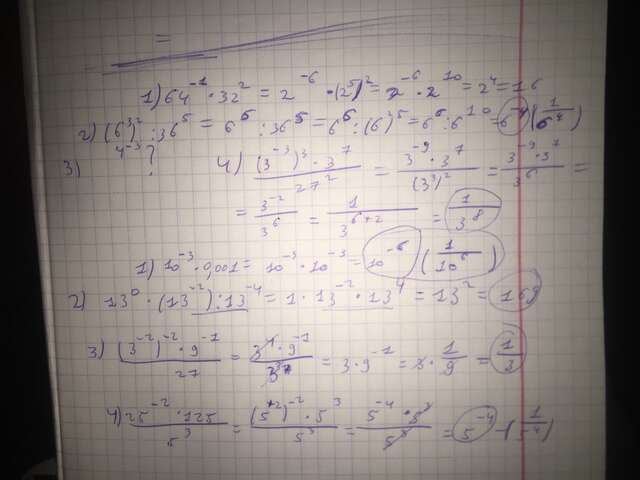 =
1) 64⁻¹ · 32² = 2⁻⁶ · (2⁵)² = 2⁻⁶ · 2¹⁰ = 2⁴ = 16
2) (6³)² : 36⁵ = 6⁶ : 36⁵ = 6⁶ : (6²)⁵ = 6⁶ : 6¹⁰ = 6⁻⁴ (1/6⁴)
3) 4⁻³ ?
4) (3⁻³)³ · 3⁷ / 27² = 3⁻⁹ · 3⁷ / (3³)² = 3⁻⁹ · 3⁷ / 3⁶ =
= 3⁻² / 3⁶ = 1 / 3⁶⁺² = 1 / 3⁸
1) 10⁻³ · 0,001 = 10⁻³ · 10⁻³ = 10⁻⁶ (1/10⁶)
2) 13⁰ · (13⁻²) : 13⁻⁴ = 1 · 13⁻² · 13⁴ = 13² = 169
3) (3⁻²)⁻² · 9⁻¹ / 27 = 3⁴ · 9⁻¹ / 3³ = 3 · 9⁻¹ = 3 · 1/9 = 1/3
4) 25⁻² · 125 / 5³ = (5⁺²)⁻² · 5³ / 5³ = 5⁻⁴ · 5³ / 5³ = 5⁻⁴ - (1/5⁴)